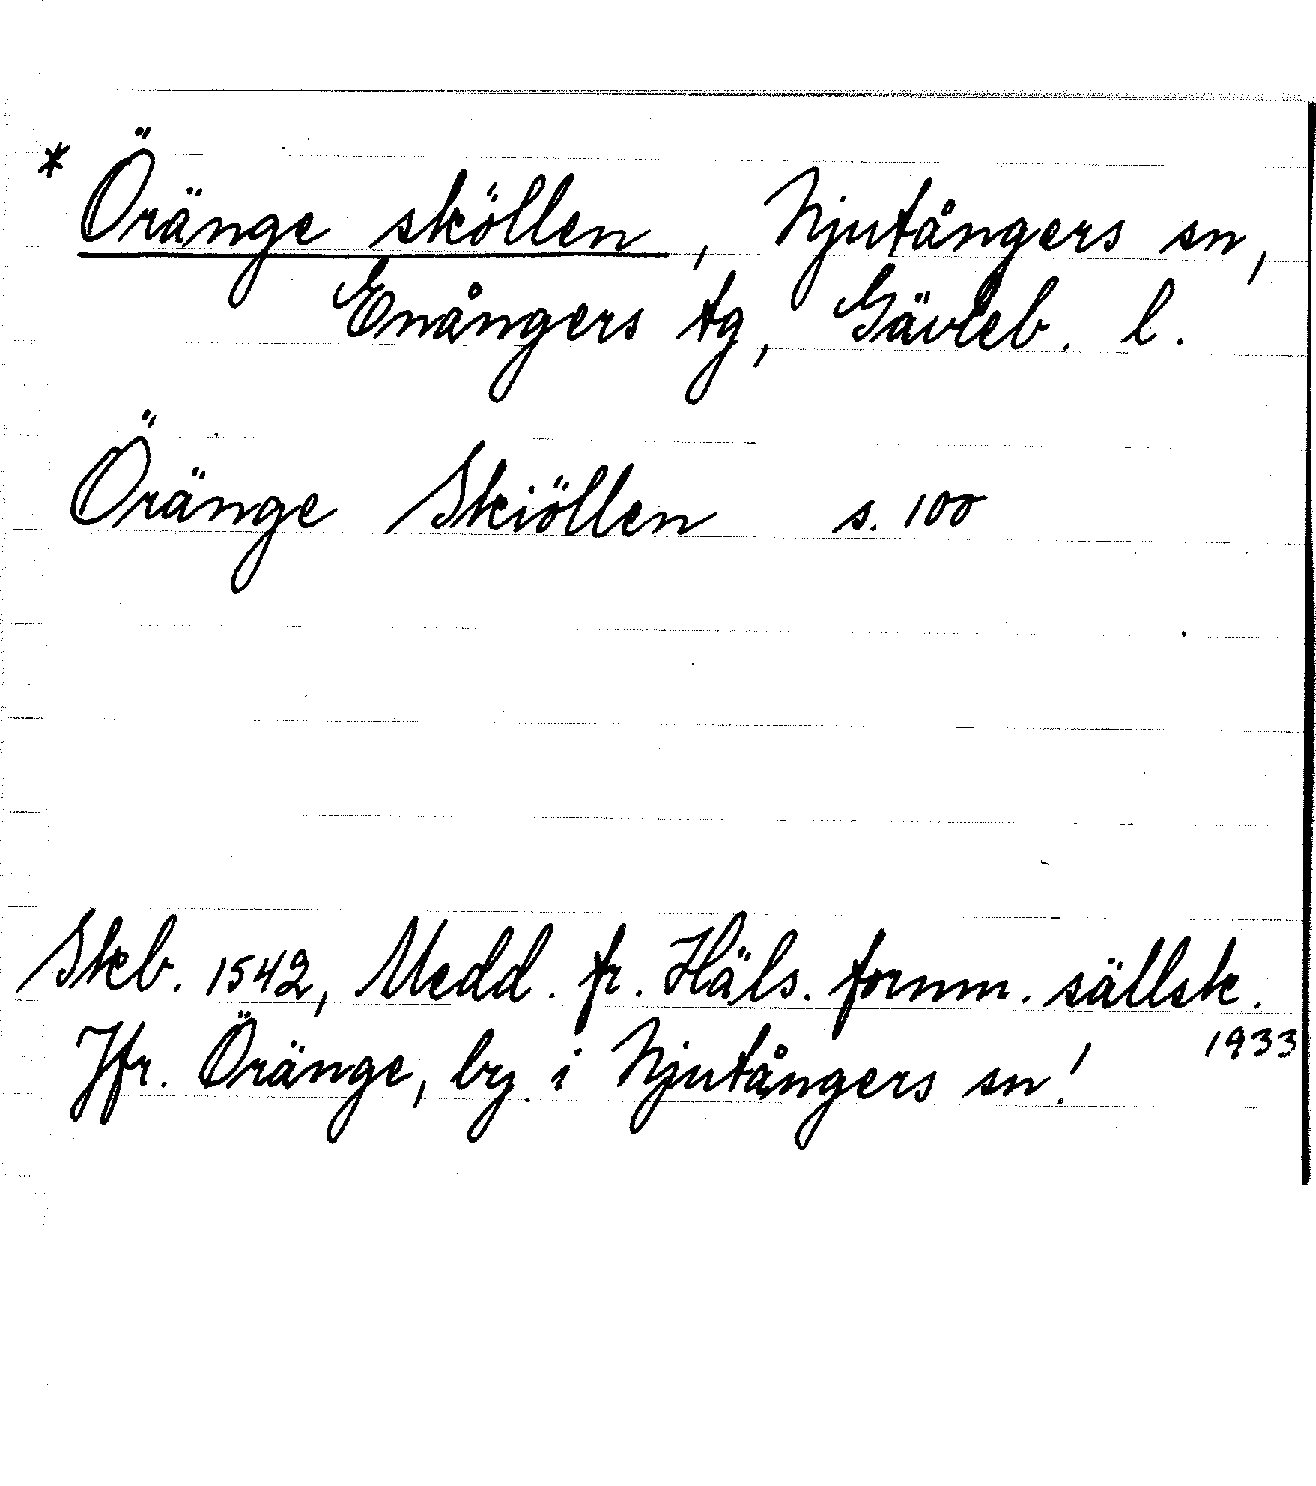 * Öränge sköllen, Njutångers sn,
Enångers tg, Gävleb. l.
Öränge Skiöllen s. 100
Skb. 1542, Medd. fr. Häls. fornm. sällsk.
1933
Jfr. Öränge, by i Njutångers sn!